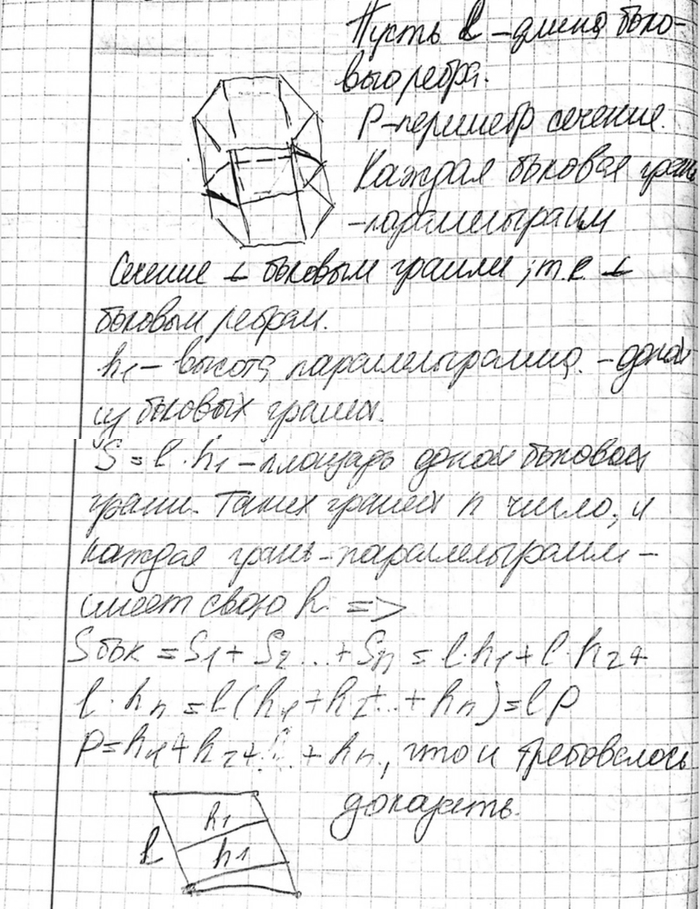 Пусть l - длина боко-
вого ребра.
P - периметр сечение.
Каждая боковая грань
- параллелограмм
Сечение ⊥ боковым граням ; т.е. ⊥
боковым ребрам.
h₁ - высота параллелограмма. - одной
из боковых граней.
S = l · h₁ - площадь одной боковой
грани. Таких граней n число, и
каждая грань - параллелограмм -
имеет свою h. =>
Sбок = S₁ + S₂ ... + Sn = l·h₁ + l·h₂ +
l · hn = l(h₁ + h₂ + .. + hn) = lP
P = h₁ + h₂ + ... + hn, что и требовалось
доказать.
h₁
l h₁